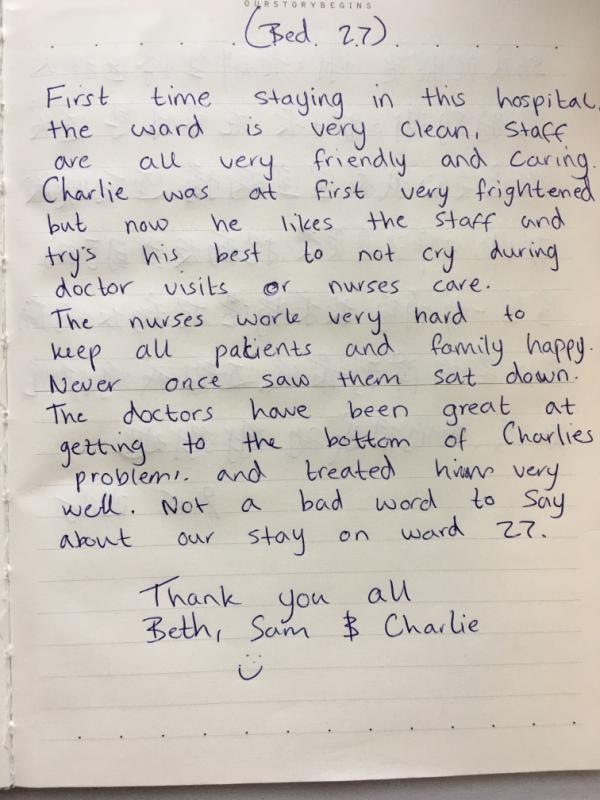 OURSTORYBEGINS
(Bed. 27)
First time staying in this hospital,
the ward is very clean, staff
are all very friendly and caring.
Charlie was at first very frightened
but now he likes the staff and
try's his best to not cry during
doctor visits or nurses care.
The nurses work very hard to
keep all patients and family happy.
Never once saw them sat down.
The doctors have been great at
getting to the bottom of Charlies
problem. and treated him very
well. Not a bad word to say
about our stay on ward 27.
Thank you all
Beth, Sam & Charlie